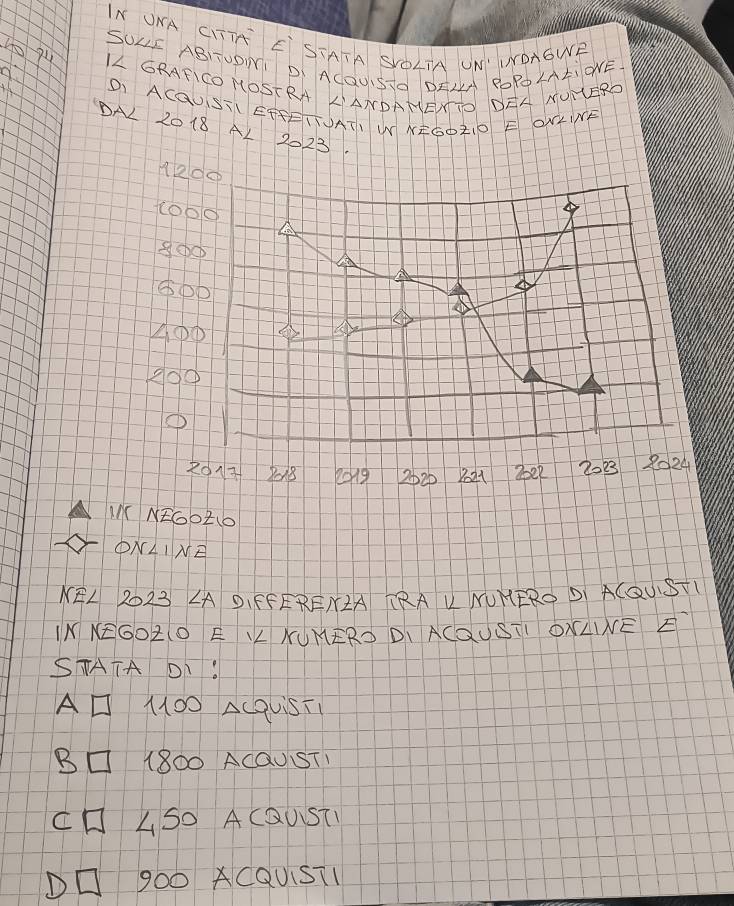 IN UNA CITTA' E' STATA SVOLTA UN' INDAGINE
SULLE ABITUDINI DI ACQUISTO DELLA POPOLAZIONE.
IL GRAFICO MOSTRA L'ANDAMENTO DEL NUMERO
DI ACQUISTI EFFETTUATI IN NEGOZIO E ONLINE
DAL 2018 AL 2023.
1200
1000
800
600
400
200
0
2017 2018 2019 2020 2021 2022 2023 2024
IN NEGOZIO
ONLINE
NEL 2023 LA DIFFERENZA TRA IL NUMERO DI ACQUISTI
IN NEGOZIO E IL NUMERO DI ACQUISTI ONLINE E'
STATA DI:
A □ 1100 ACQUISTI
B □ 1800 ACQUISTI
C □ 450 ACQUISTI
D □ 900 ACQUISTI